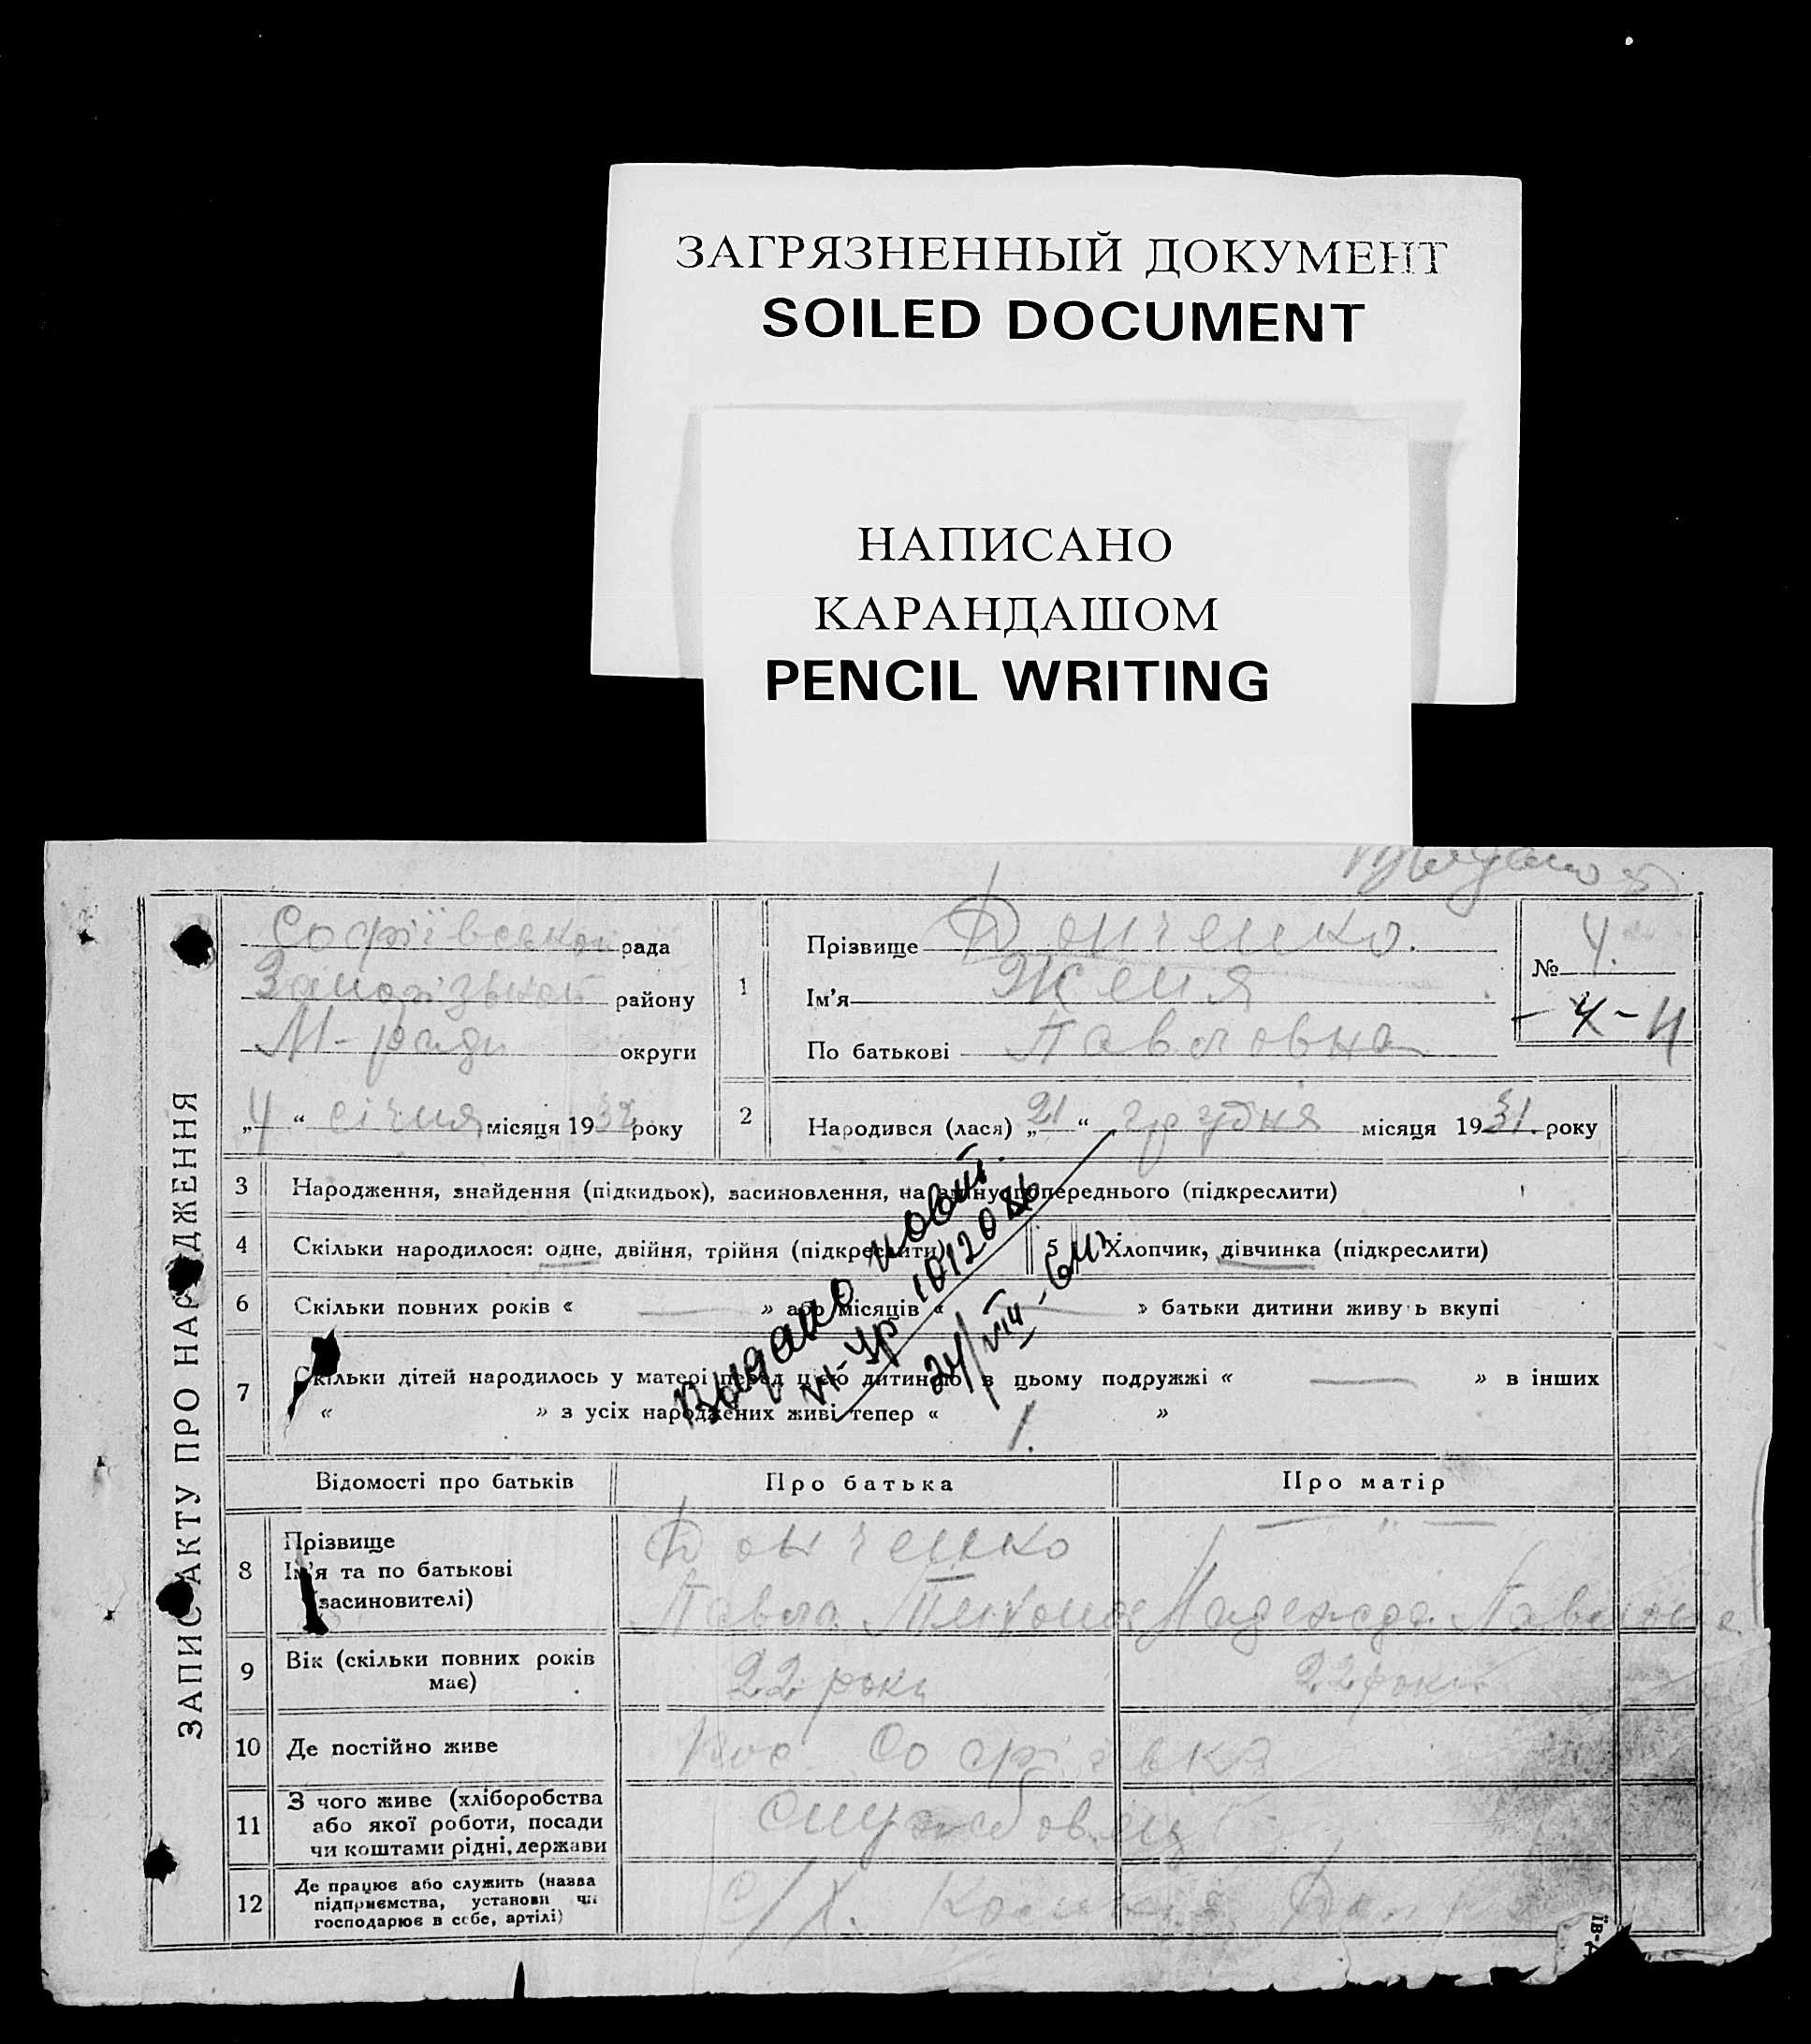 ЗАГРЯЗНЕННЫЙ ДОКУМЕНТ
SOILED DOCUMENT
НАПИСАНО
КАРАНДАШОМ
PENCIL WRITING
ЗАПИС АКТУ ПРО НАРОДЖЕННЯ
Софіївської рада
Запорізької району
М-ради округи
„4“ січня місяця 1932 року
1
Прізвище Донченко.
Ім’я Женя
По батькові Павловна
№ 4.
- 4 - 4
2 Народився (лася) „21“ грудня місяця 1931. року
3 Народження, знайдення (підкидьок), засиновлення, на зміну попереднього (підкреслити)
4 Скільки народилося: одне, двійня, трійня (підкреслити)
5 Хлопчик, дівчинка (підкреслити)
6 Скільки повних років « — » або місяців « — » батьки дитини живуть вкупі
7 Скільки дітей народилось у матері перед цією дитиною в цьому подружжі « — » в інших
« » з усіх народжених живі тепер « 1. »
Видано повт.
VI-УР 1012086
24/VIII-64г.
Відомості про батьків
Про батька
Про матір
8 Прізвище
Ім’я та по батькові
(засиновителі)
Донченко — " —
Павло Надежда
9 Вік (скільки повних років
має)
22 роки 22 роки
10 Де постійно живе
Софіївка
11 З чого живе (хліборобства
або якої роботи, посади
чи коштами рідні, держави
Службовец
12 Де працює або служить (назва
підприємства, установи чи
господарює в себе, артілі)
С/Х.